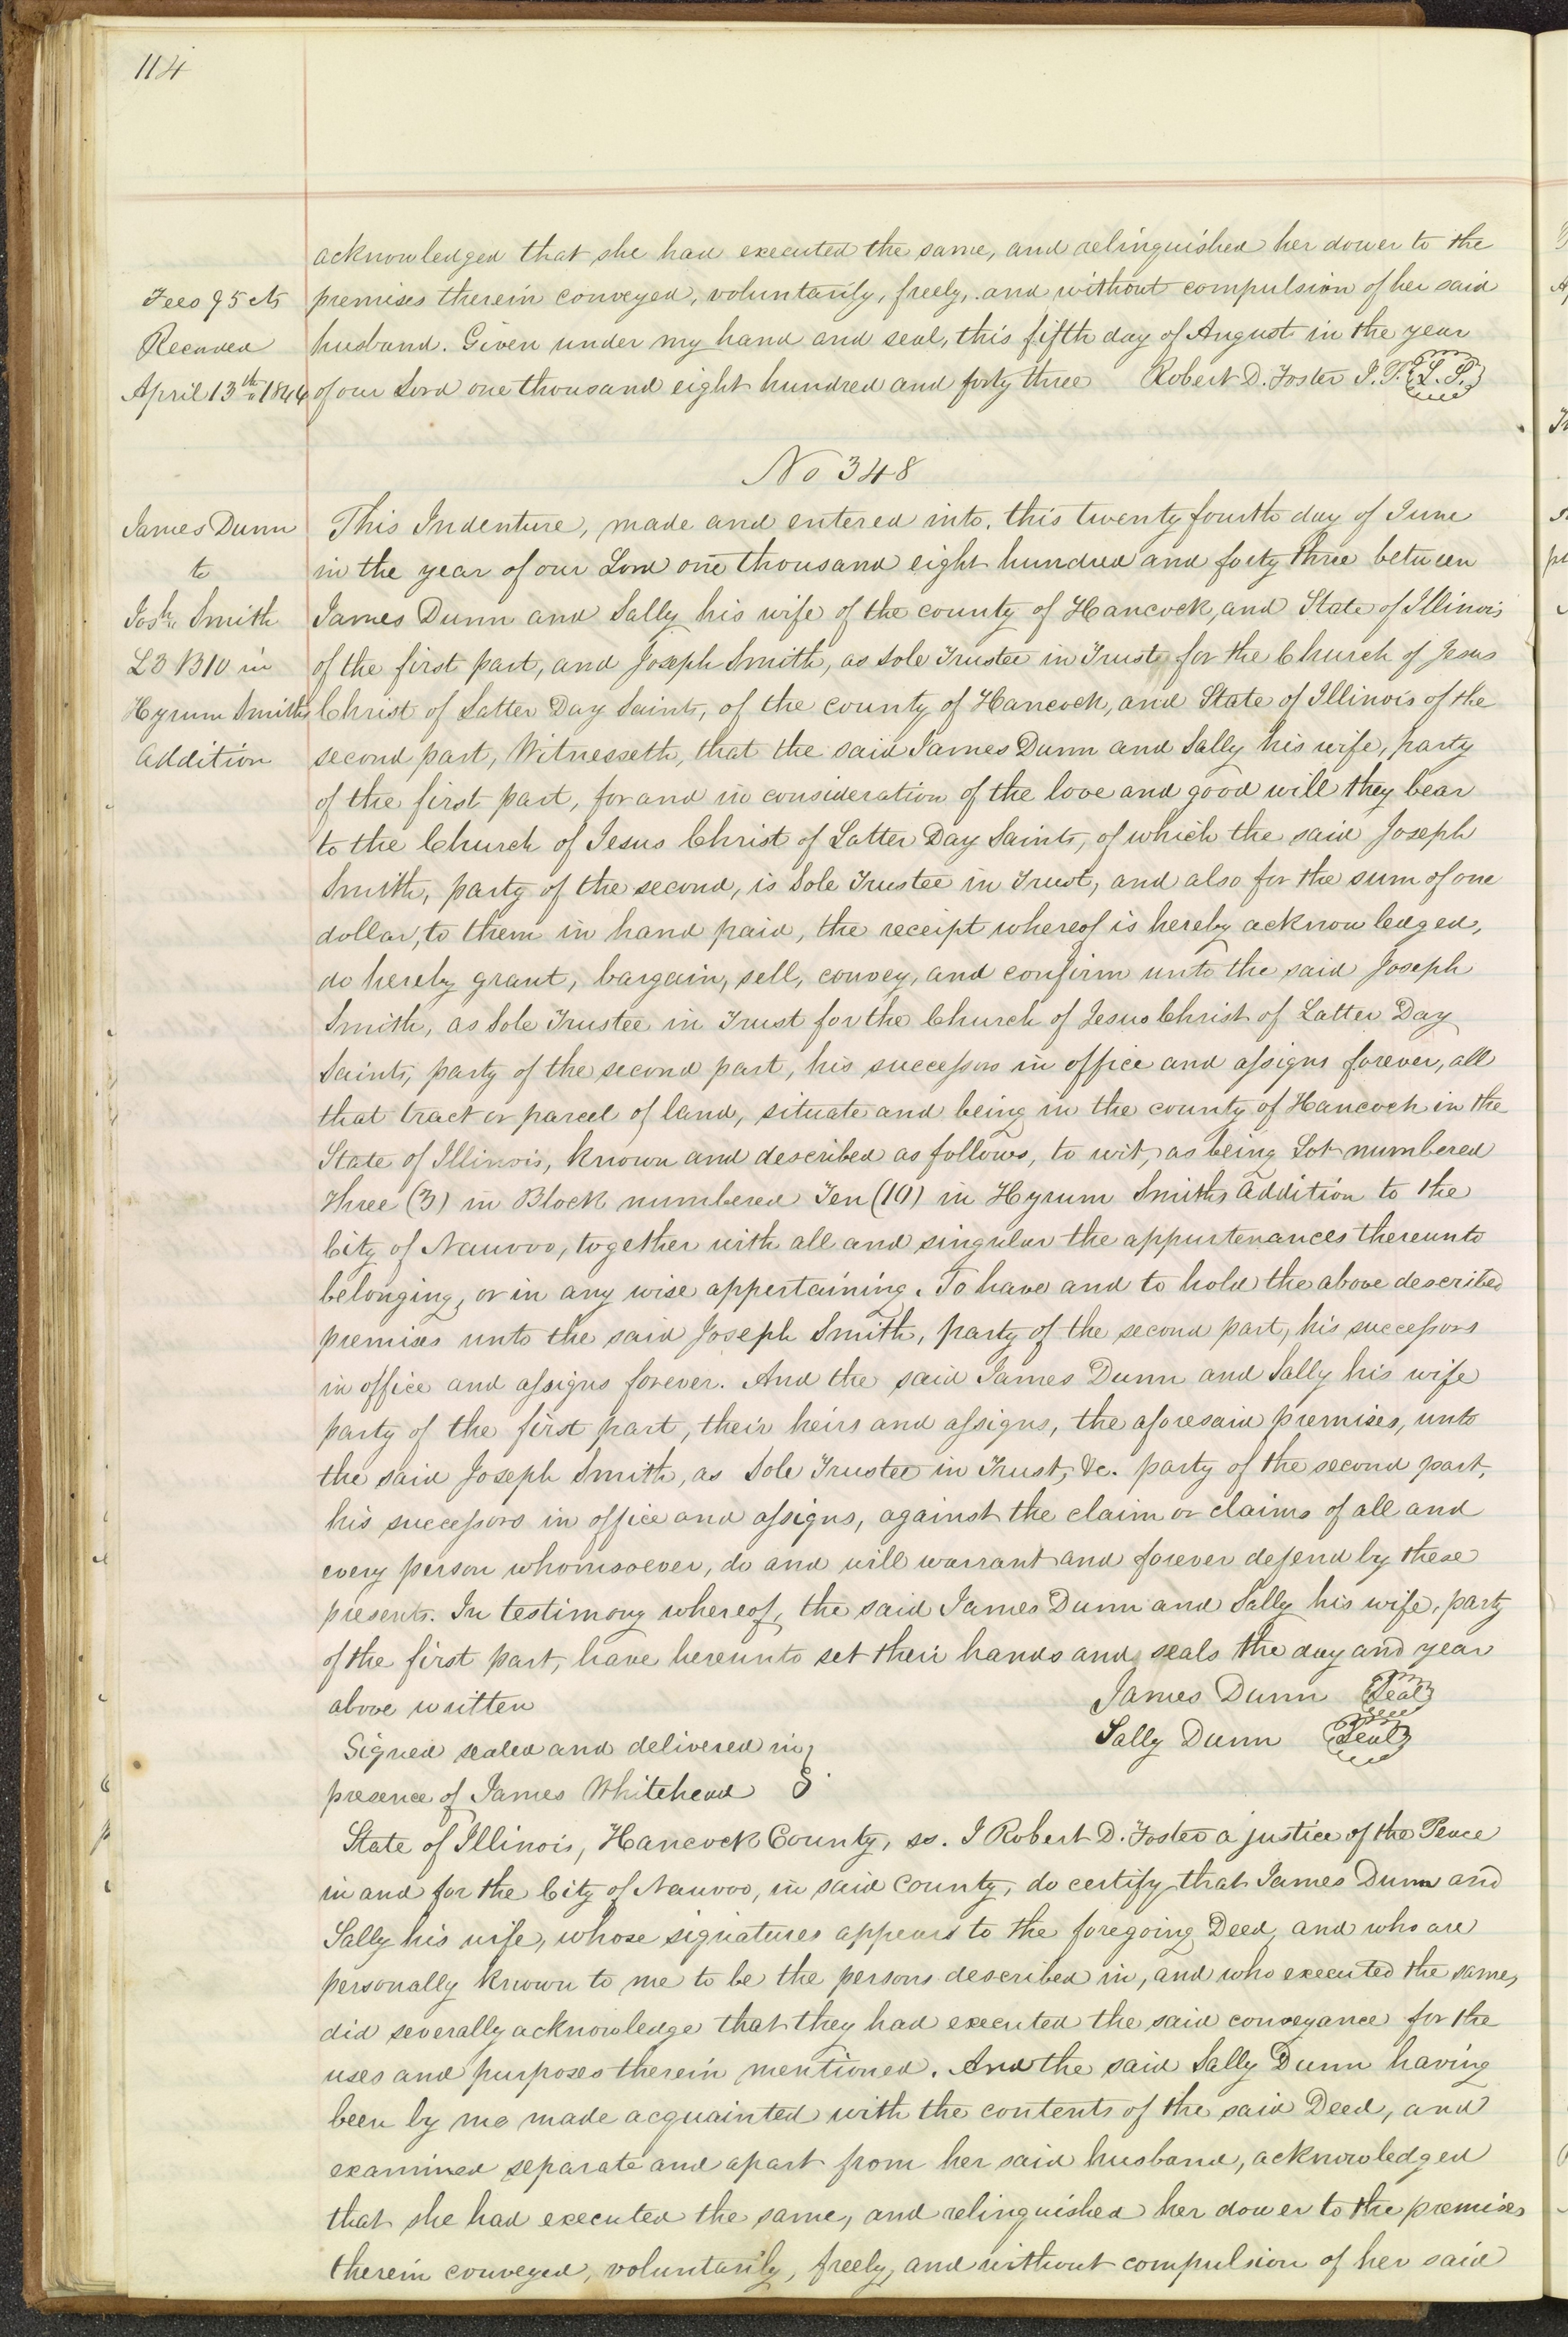 114
acknowledged that she had executed the same, and relinquished her dower to the
Fees 95 cts
premises therein conveyed, voluntarily, freely, and without compulsion of her said
Recorded
husband. Given under my hand and seal, this fifth day of August in the year
April 13th 1844
of our Lord one thousand eight hundred and forty three Robert D. Foster J. P. L. S.
No 348
James Dunn
This Indenture, made and entered into, this twenty fourth day of June
to
in the year of our Lord one thousand eight hundred and forty three between
Josh. Smith
James Dunn and Sally his wife of the county of Hancock, and State of Illinois
L3 B10 in
of the first part, and Joseph Smith, as Sole Trustee in Trust for the Church of Jesus
Hyrum Smiths
Christ of Latter Day Saints, of the county of Hancock, and State of Illinois of the
Addition
second part, Witnesseth, that the said James Dunn and Sally his wife, party
of the first part, for and in consideration of the love and good will they bear
to the Church of Jesus Christ of Latter Day Saints, of which the said Joseph
Smith, party of the second, is Sole Trustee in Trust, and also for the sum of one
dollar, to them in hand paid, the receipt whereof is hereby acknowledged,
do hereby grant, bargain, sell, convey, and confirm unto the said Joseph
Smith, as Sole Trustee in Trust for the Church of Jesus Christ of Latter Day
Saints, party of the second part, his successors in office and assigns forever, all
that tract or parcel of land, situate and being in the county of Hancock in the
State of Illinois, known and described as follows, to wit, as being Lot numbered
Three (3) in Block numbered Ten (10) in Hyrum Smiths Addition to the
City of Nauvoo, together with all and singular the appurtenances thereunto
belonging, or in any wise appertaining. To have and to hold the above described
premises unto the said Joseph Smith, party of the second part, his successors
in office and assigns forever. And the said James Dunn and Sally his wife
party of the first part, their heirs and assigns, the aforesaid premises, unto
the said Joseph Smith, as Sole Trustee in Trust, &c. party of the second part,
his successors in office and assigns, against the claim or claims of all and
every person whomsoever, do and will warrant and forever defend by these
presents. In testimony whereof, the said James Dunn and Sally his wife, party
of the first part, have hereunto set their hands and seals the day and year
above written James Dunn Seal
Signed sealed and delivered in Sally Dunn Seal
presence of James Whitehead
State of Illinois, Hancock County, ss. I Robert D. Foster a justice of the Peace
in and for the City of Nauvoo, in said County, do certify that James Dunn and
Sally his wife, whose signatures appears to the foregoing Deed, and who are
personally known to me to be the persons described in, and who executed the same,
did severally acknowledge that they had executed the said conveyance for the
uses and purposes therein mentioned. And the said Sally Dunn having
been by me made acquainted with the contents of the said Deed, and
examined separate and apart from her said husband, acknowledged
that she had executed the same, and relinquished her dower to the premises
therein conveyed, voluntarily, freely, and without compulsion of her said